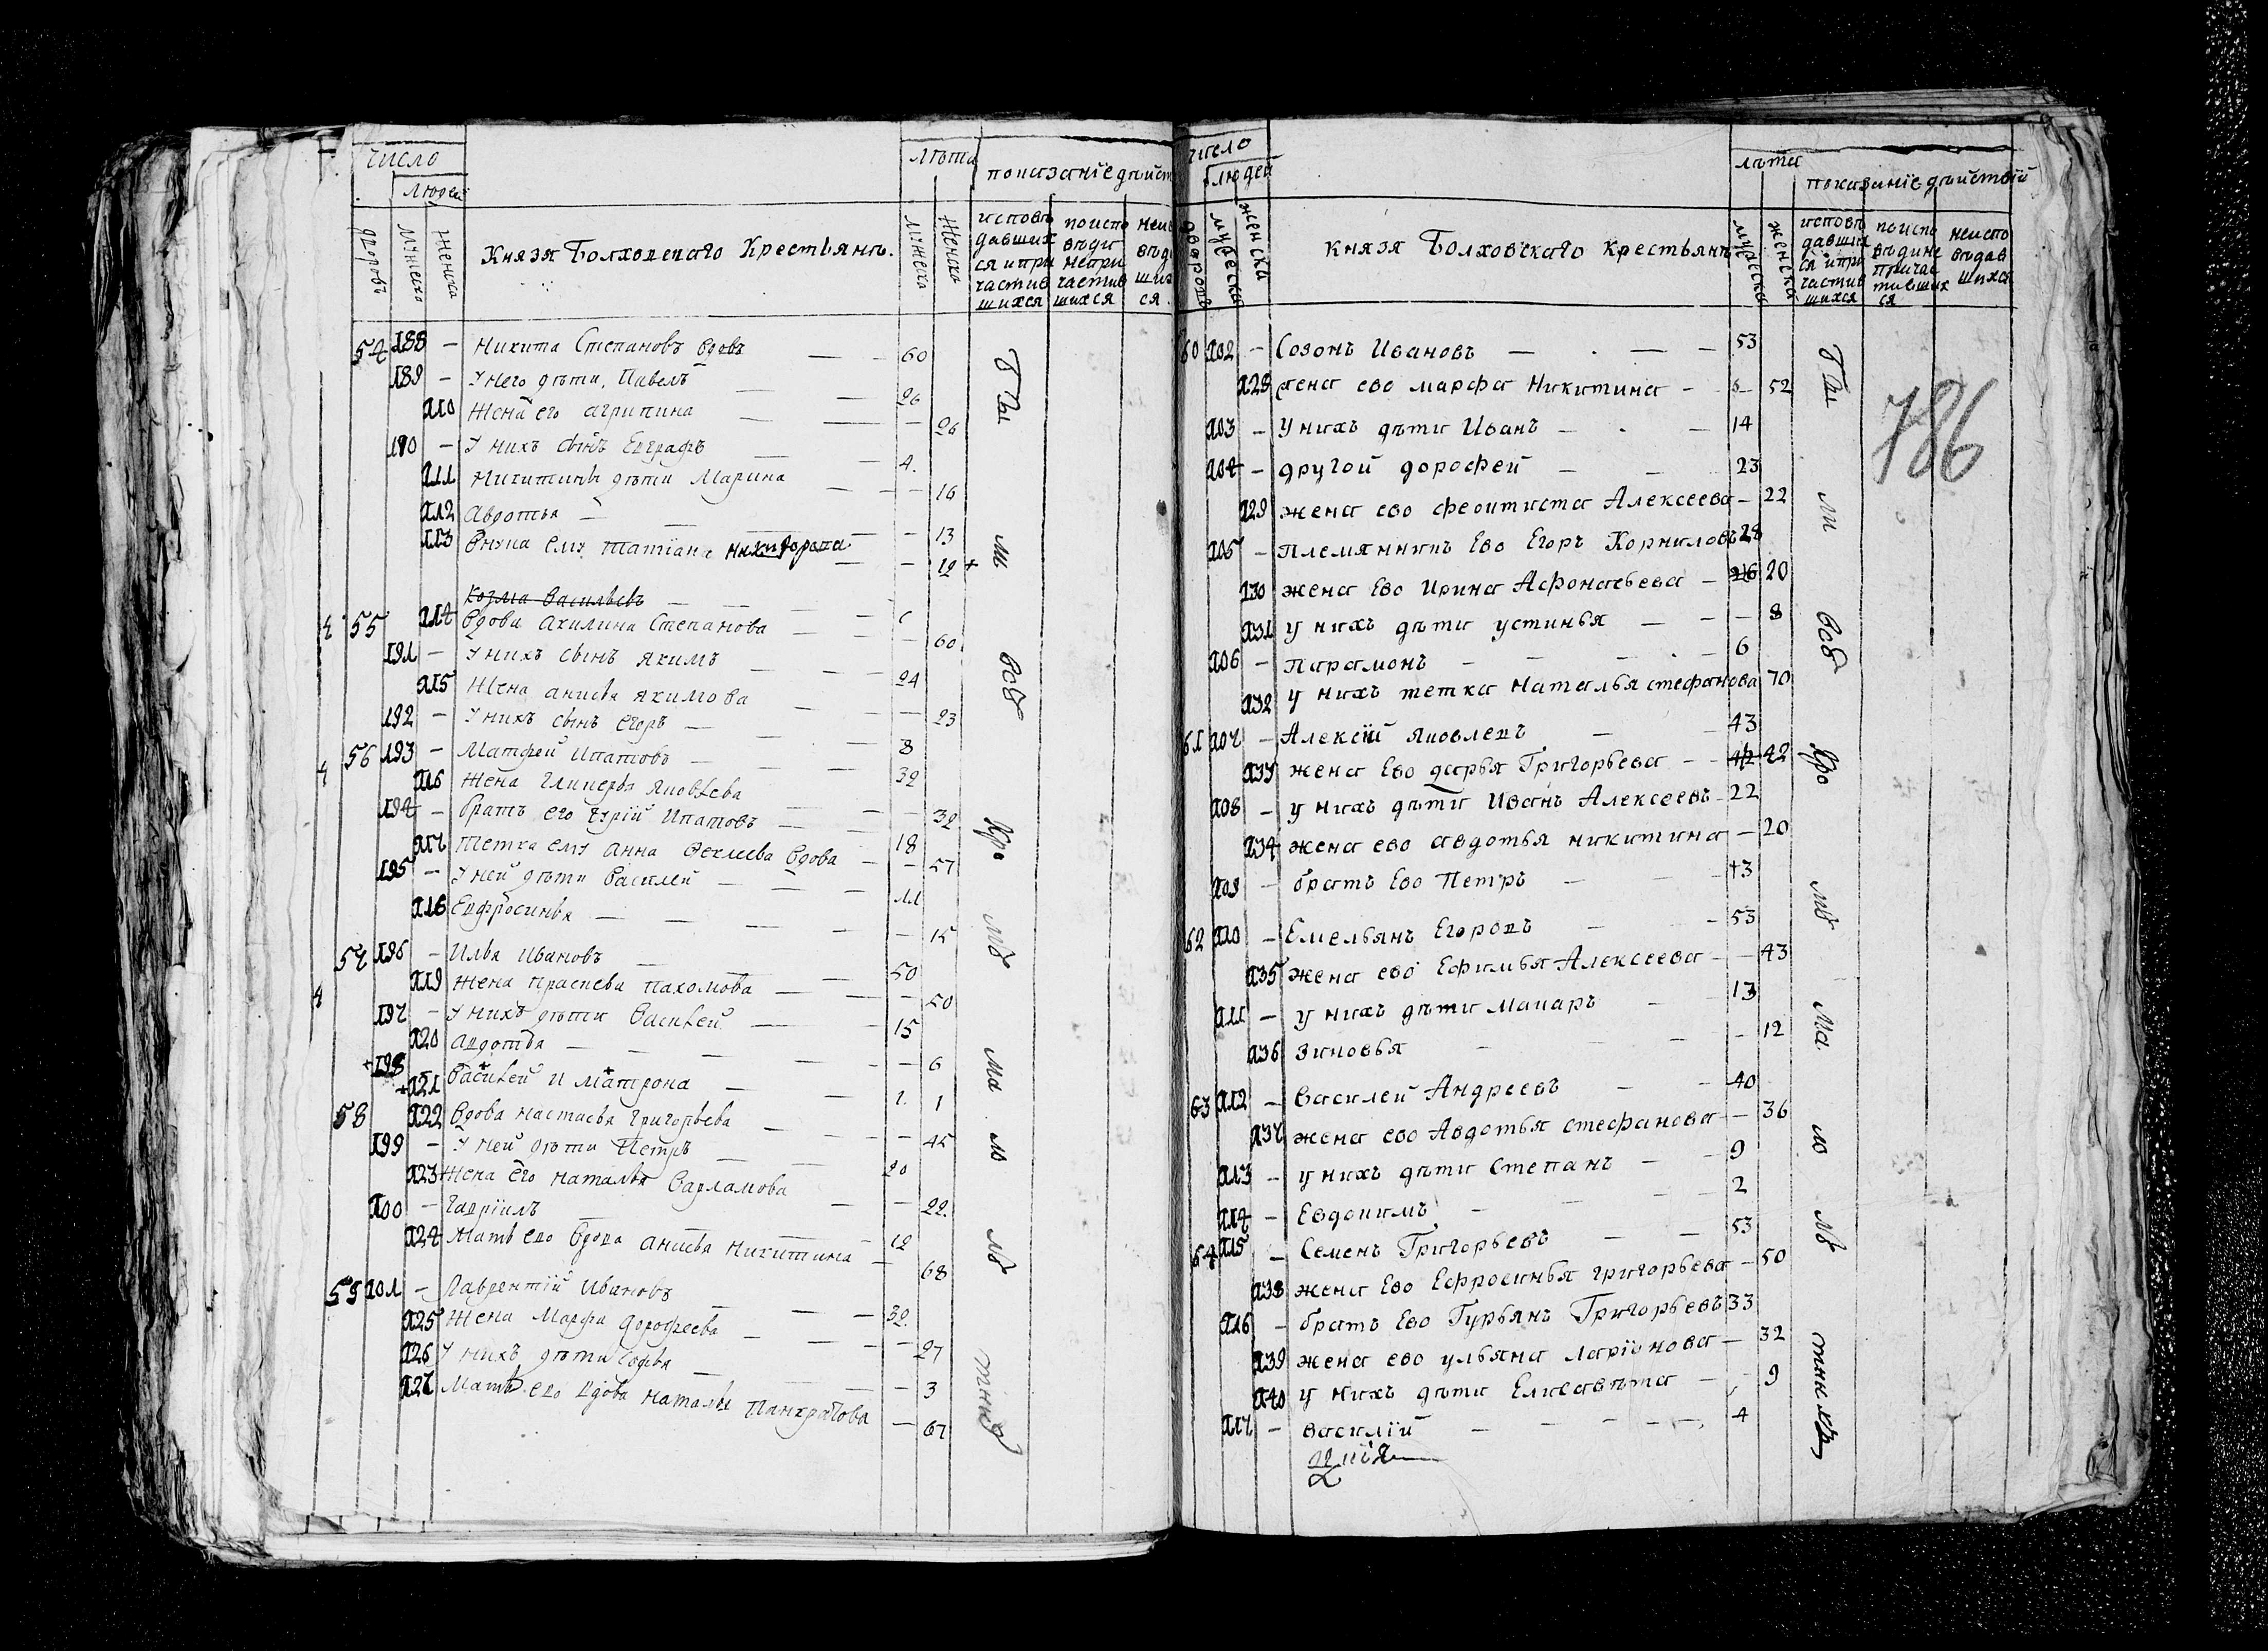 число
людей
лѣта
показаніе дѣйст
дворовъ
мужеска
женска
Князя Болховскаго Крестьянъ.
мужеска
женска
исповѣ
давших
ся и при
частив
шихся
по испо
вѣди
непри
частив
шихся
неис
вѣда
ших
ся.
54 188 — Никита Степановъ вдовъ — 60
189 — У него дѣти, Павелъ — 26
210 Жена его агрипина — 26
190 — У нихъ сынъ Евграфъ — 4.
211 Никитины дѣти Марина — 16
212 Авдотья — 13
213 Внука ему татіана никифорова — 12 +
Козма Васильевъ
55 214 Вдова акилина Степанова — 60
191 — У нихъ сынъ якимъ — 24
215 Жена анисья якимова — 23
192 — У нихъ сынъ егоръ — 8
56 193 — Матфей Ипатовъ — 32
216 Жена Гликерья яковлева — 32
194 — братъ его гурій Ипатовъ — 18
217 тетка ему анна вдова — 57
195 — У ней дѣти Василей — 11
218 Евфросинья — 15
57 196 — Илья Ивановъ — 50
219 Жена праскева пахомова — 50
197 — У нихъ дѣти Василей — 15
220 авдотья — 6
+ 198 + 221 Василей и матрона — 1. 1
58 222 Вдова настасья григорьева — 45
199 — У ней дѣти Петръ — 20
223 Жена его наталья варламова — 22.
200 — гавріилъ — 12
224 Мать ево вдова анисья никитина — 68
59 201 — Лаврентій Ивановъ — 32.
225 Жена Марфа дорофеева — 27
226 У нихъ дѣти софья — 3
227 Мать ево вдова наталья панкратова — 67
число
людей
лѣта
показаніе дѣйствій
дворовъ
мужеска
женска
князя Болховскаго крестьянъ
мужеска
женска
исповѣ
давших
ся и при
частив
шихся
по испо
вѣди не
причас
тивших
ся
неиспо
вѣдав
шихся
786
60 202 — Созонъ Ивановъ — 53
228 жена ево марфа Никитина — 52
203 — У нихъ дѣти Иванъ — 14
204 — другой дорофей — 23
229 жена ево феоктиста Алексеева — 22
205 — Племянникъ Ево Егоръ Корниловъ 28
230 жена Ево Ирина Афонасьева — 26 20
231 у нихъ дѣти устинья — 8
206 — Парамонъ — 6
232 у нихъ тетка наталья стефанова 70
61 207 — Алексій яковлевъ — 43
233 жена Ево дарья Григорьева — 42
208 — у нихъ дѣти Иванъ Алексеевъ — 22
234 жена ево авдотья никитина — 20
209 — братъ Ево Петръ — 13
62 210 — Емельянъ Егоровъ — 53
235 жена ево Ефимья Алексеева — 43
211 — у нихъ дѣти макаръ — 13
236 зиновья — 12
63 212 — василей Андреевъ — 40
237 жена ево Авдотья стефанова — 36
213 — у нихъ дѣти степанъ — 9
214 — Евдокимъ — 2
64 215 — Семенъ Григорьевъ — 53
238 жена Ево Ефросинья григорьева — 50
216 — братъ Ево Гурьянъ Григорьевъ 33
239 жена ево ульяна ларіонова — 32
240 у нихъ дѣти Елисавѣта — 9
217 — василій — 4